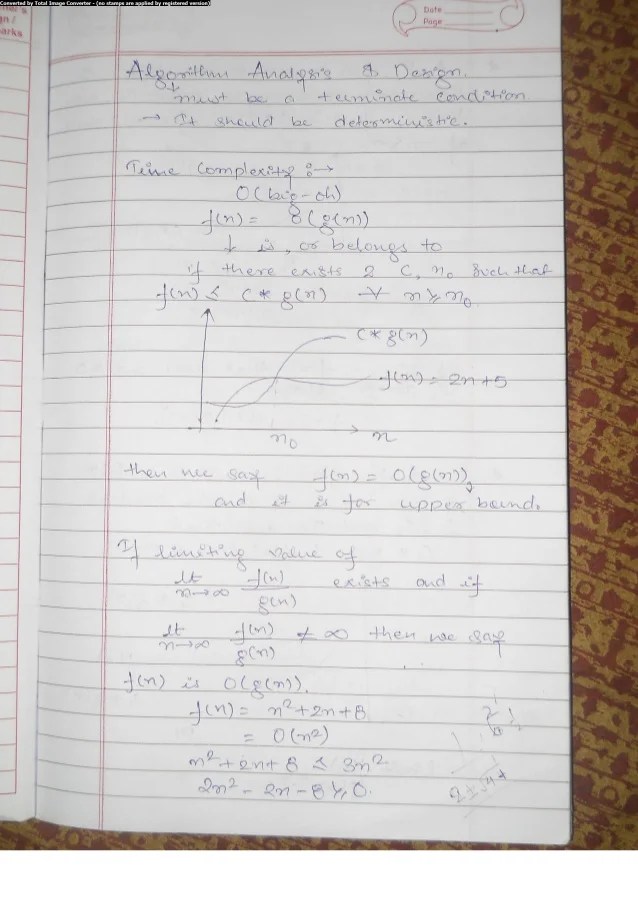 Converted by Total Image Converter - (no stamps are applied by registered version)
Date
Page
Algorithm Analysis & Design.
must be a terminate condition
→ It should be deterministic.
Time Complexity :→
O(big-oh)
f(n) = O(g(n))
↓ is, or belongs to
if there exists 2 C, n₀ such that
f(n) ≤ C * g(n) ∀ n ≥ n₀
C * g(n)
f(n) = 2n + 5
n₀ → n
then we say f(n) = O(g(n)),
and it is for upper bound.
If limiting value of
lt n→∞ f(n)/g(n) exists and if
lt n→∞ f(n)/g(n) ≠ ∞ then we say
f(n) is O(g(n)).
f(n) = n² + 2n + 8
= O(n²)
n² + 2n + 8 ≤ 3n²
2n² - 2n - 8 ≥ 0.